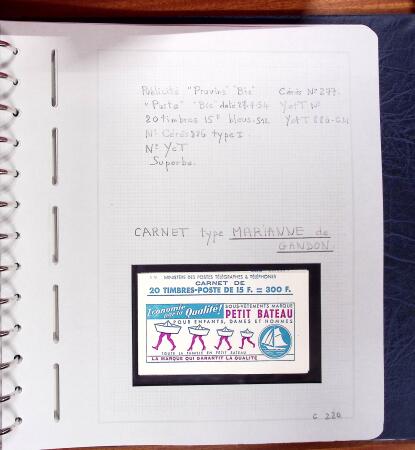 Publicité "Provins" "Bic" Cérès N° 277.
"Posta" "Bic" daté 27.7.54 YetT N°
20 timbres 15F bleus.S12 YetT 886-C.
N° Cérès 886 type I.
N° YeT
Superbe.
CARNET type MARIANNE de
GANDON.
MINISTÈRE DES POSTES TÉLÉGRAPHES & TÉLÉPHONES
CARNET DE
20 TIMBRES-POSTE DE 15 F. = 300 F.
Economie
par la Qualité!
SOUS-VÊTEMENTS MARQUE
PETIT BATEAU
POUR ENFANTS, DAMES ET HOMMES
TOUTE LA FAMILLE EN PETIT BATEAU
LA MARQUE QUI GARANTIT LA QUALITÉ
C 220